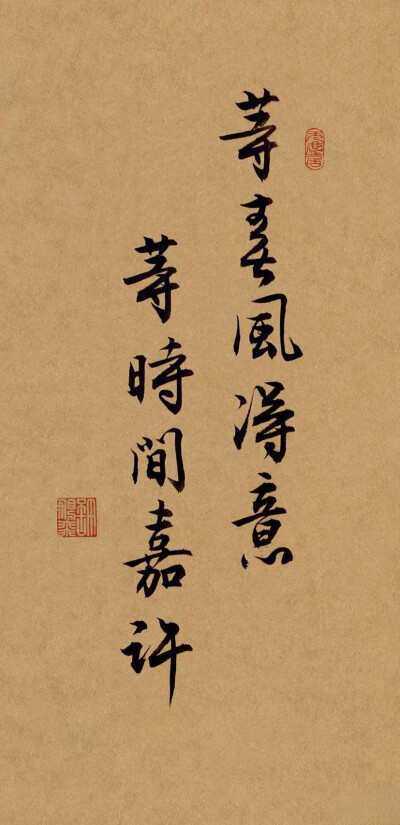 等春風得意
等時間嘉許